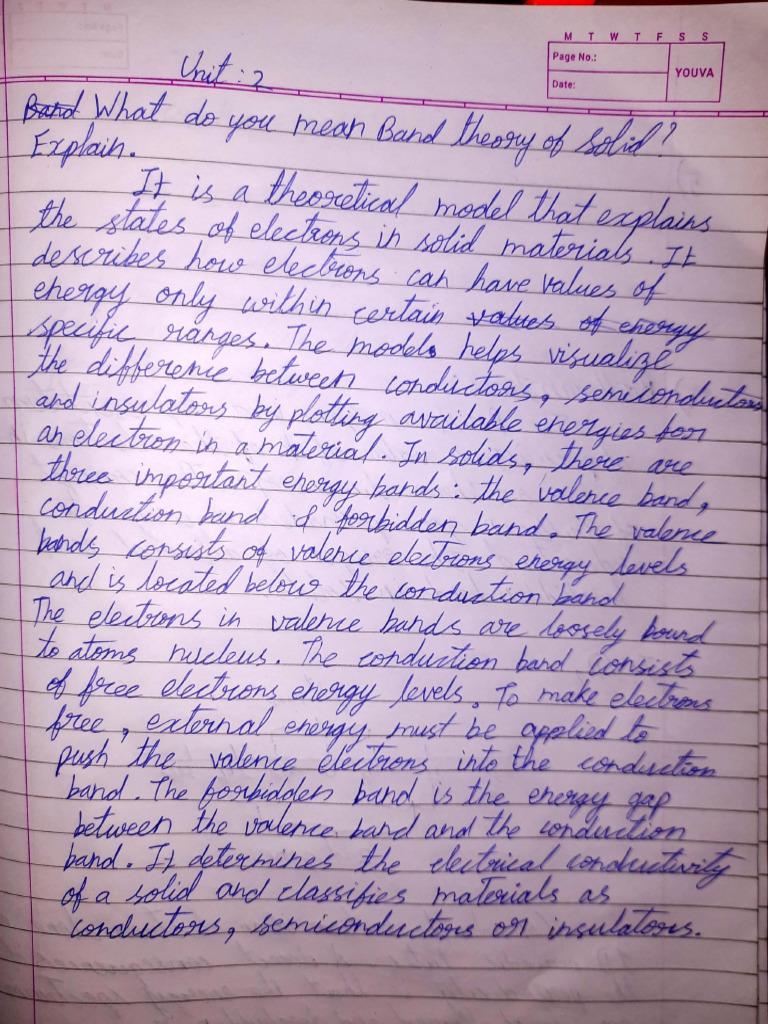 M T W T F S S
Page No.:
YOUVA
Date:
Unit : 2
Band What do you mean Band theory of solid?
Explain.
It is a theoretical model that explains
the states of electrons in solid materials. It
describes how electrons can have values of
energy only within certain values of energy
specific ranges. The models helps visualize
the difference between conductors, semiconductors
and insulators by plotting available energies for
an electron in a material. In solids, there are
three important energy bands: the valence band,
conduction band & forbidden band. The valence
bands consists of valence electrons energy levels
and is located below the conduction band
The electrons in valence bands are loosely bound
to atoms nucleus. The conduction band consists
of free electrons energy levels. To make electrons
free, external energy must be applied to
push the valence electrons into the conduction
band. The forbidden band is the energy gap
between the valence band and the conduction
band. It determines the electrical conductivity
of a solid and classifies materials as
conductors, semiconductors or insulators.